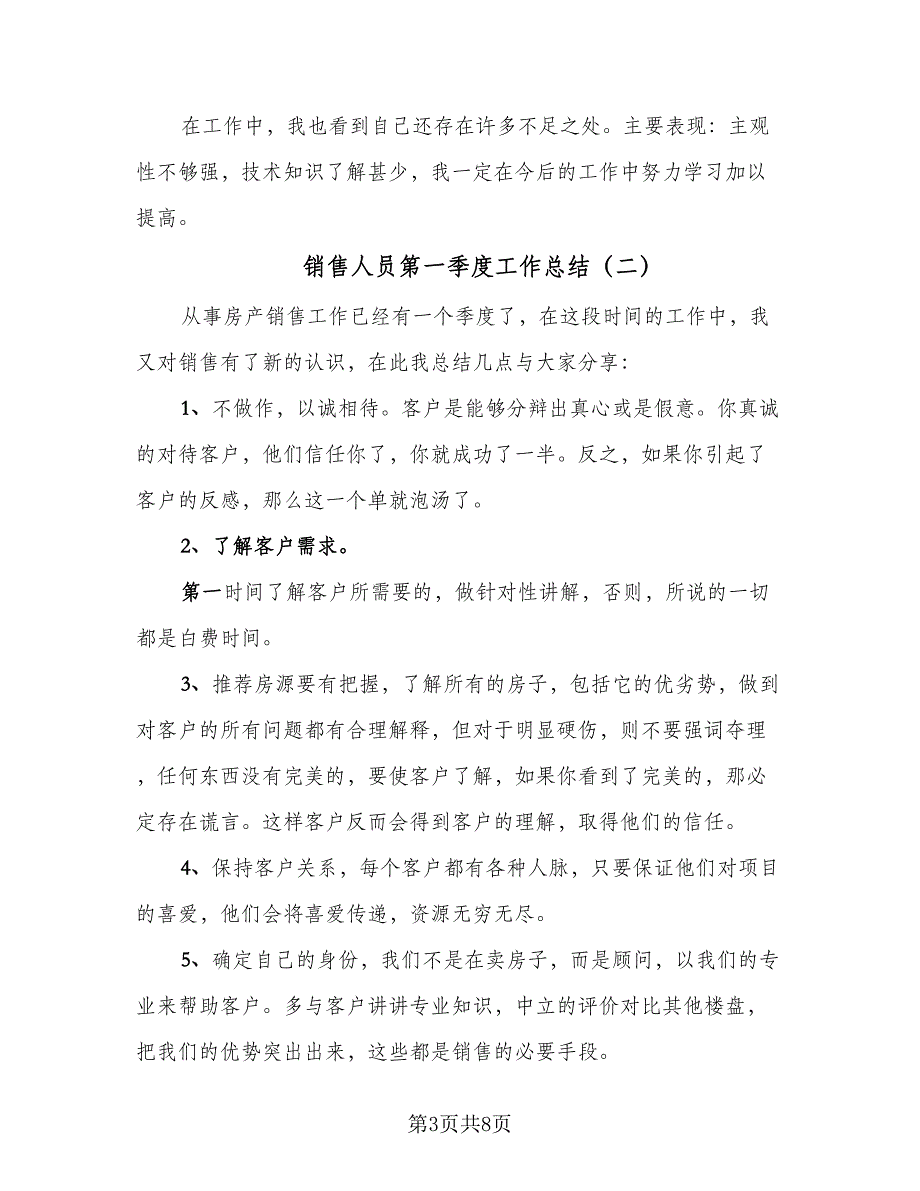 在工作中，我也看到自己还存在许多不足之处。主要表现：主观
性不够强，技术知识了解甚少，我一定在今后的工作中努力学习加以
提高。
销售人员第一季度工作总结（二）
从事房产销售工作已经有一个季度了，在这段时间的工作中，我
又对销售有了新的认识，在此我总结几点与大家分享：
1、不做作，以诚相待。客户是能够分辩出真心或是假意。你真诚
的对待客户，他们信任你了，你就成功了一半。反之，如果你引起了
客户的反感，那么这一个单就泡汤了。
2、了解客户需求。
第一时间了解客户所需要的，做针对性讲解，否则，所说的一切
都是白费时间。
3、推荐房源要有把握，了解所有的房子，包括它的优劣势，做到
对客户的所有问题都有合理解释，但对于明显硬伤，则不要强词夺理
，任何东西没有完美的，要使客户了解，如果你看到了完美的，那必
定存在谎言。这样客户反而会得到客户的理解，取得他们的信任。
4、保持客户关系，每个客户都有各种人脉，只要保证他们对项目
的喜爱，他们会将喜爱传递，资源无穷无尽。
5、确定自己的身份，我们不是在卖房子，而是顾问，以我们的专
业来帮助客户。多与客户讲讲专业知识，中立的评价对比其他楼盘，
把我们的优势突出出来，这些都是销售的必要手段。
第3页共8页